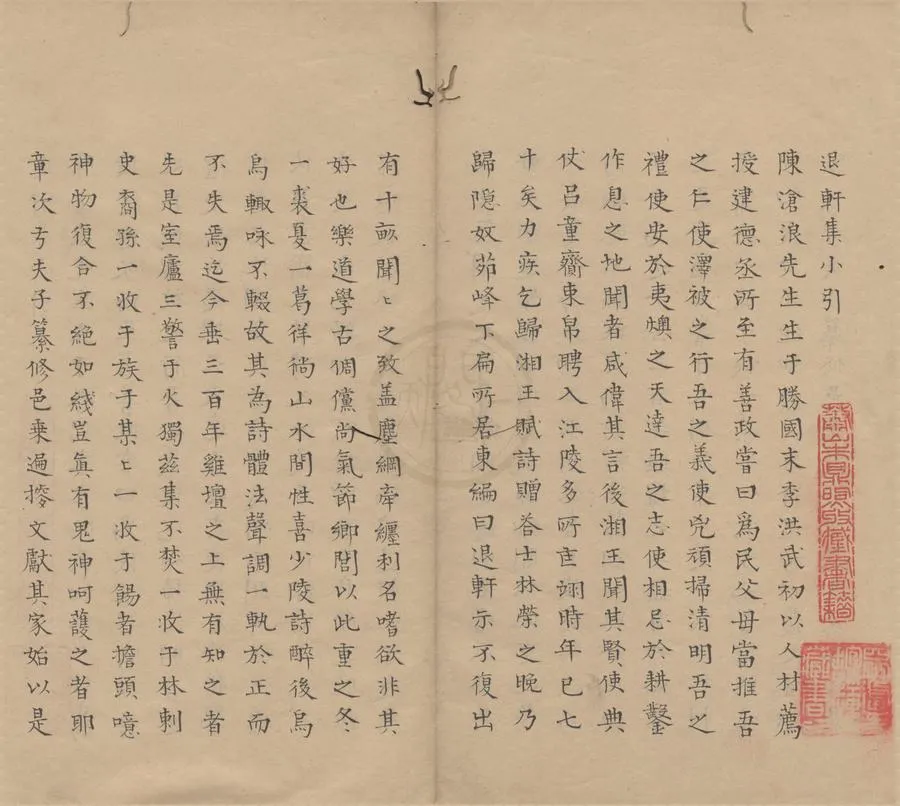 退軒集小引
陳滄浪先生生于勝國末季洪武初以人材薦
授建德丞所至有善政嘗曰為民父母當推吾
之仁使澤被之行吾之義使兇頑掃清明吾之
禮使安於夷燠之天達吾之志使相忌於耕鑿
作息之地聞者咸偉其言後湘王聞其賢使典
仗呂童齎束帛聘入江陵多所匡翊時年已七
十矣力疾乞歸湘王賦詩贈答士林榮之晚乃
歸隱奴茆峰下扁所居東編曰退軒示不復出
有十畝聞〻之致盖塵網牽纏利名嗜欲非其
好也樂道學古倜儻尚氣節鄉閭以此重之冬
一裘夏一葛徉徜山水間性喜少陵詩醉後烏
烏輙咏不輟故其為詩體法聲調一軌於正而
不失焉迄今垂三百年雞壇之上無有知之者
先是室廬三警于火獨茲集不焚一收于林刺
史裔孫一收于族于某〻一收于鬻者擔頭噫
神物復合不絕如綫豈真有鬼神呵護之者耶
章次弓夫子纂修邑乗遍搜文獻其家始以是